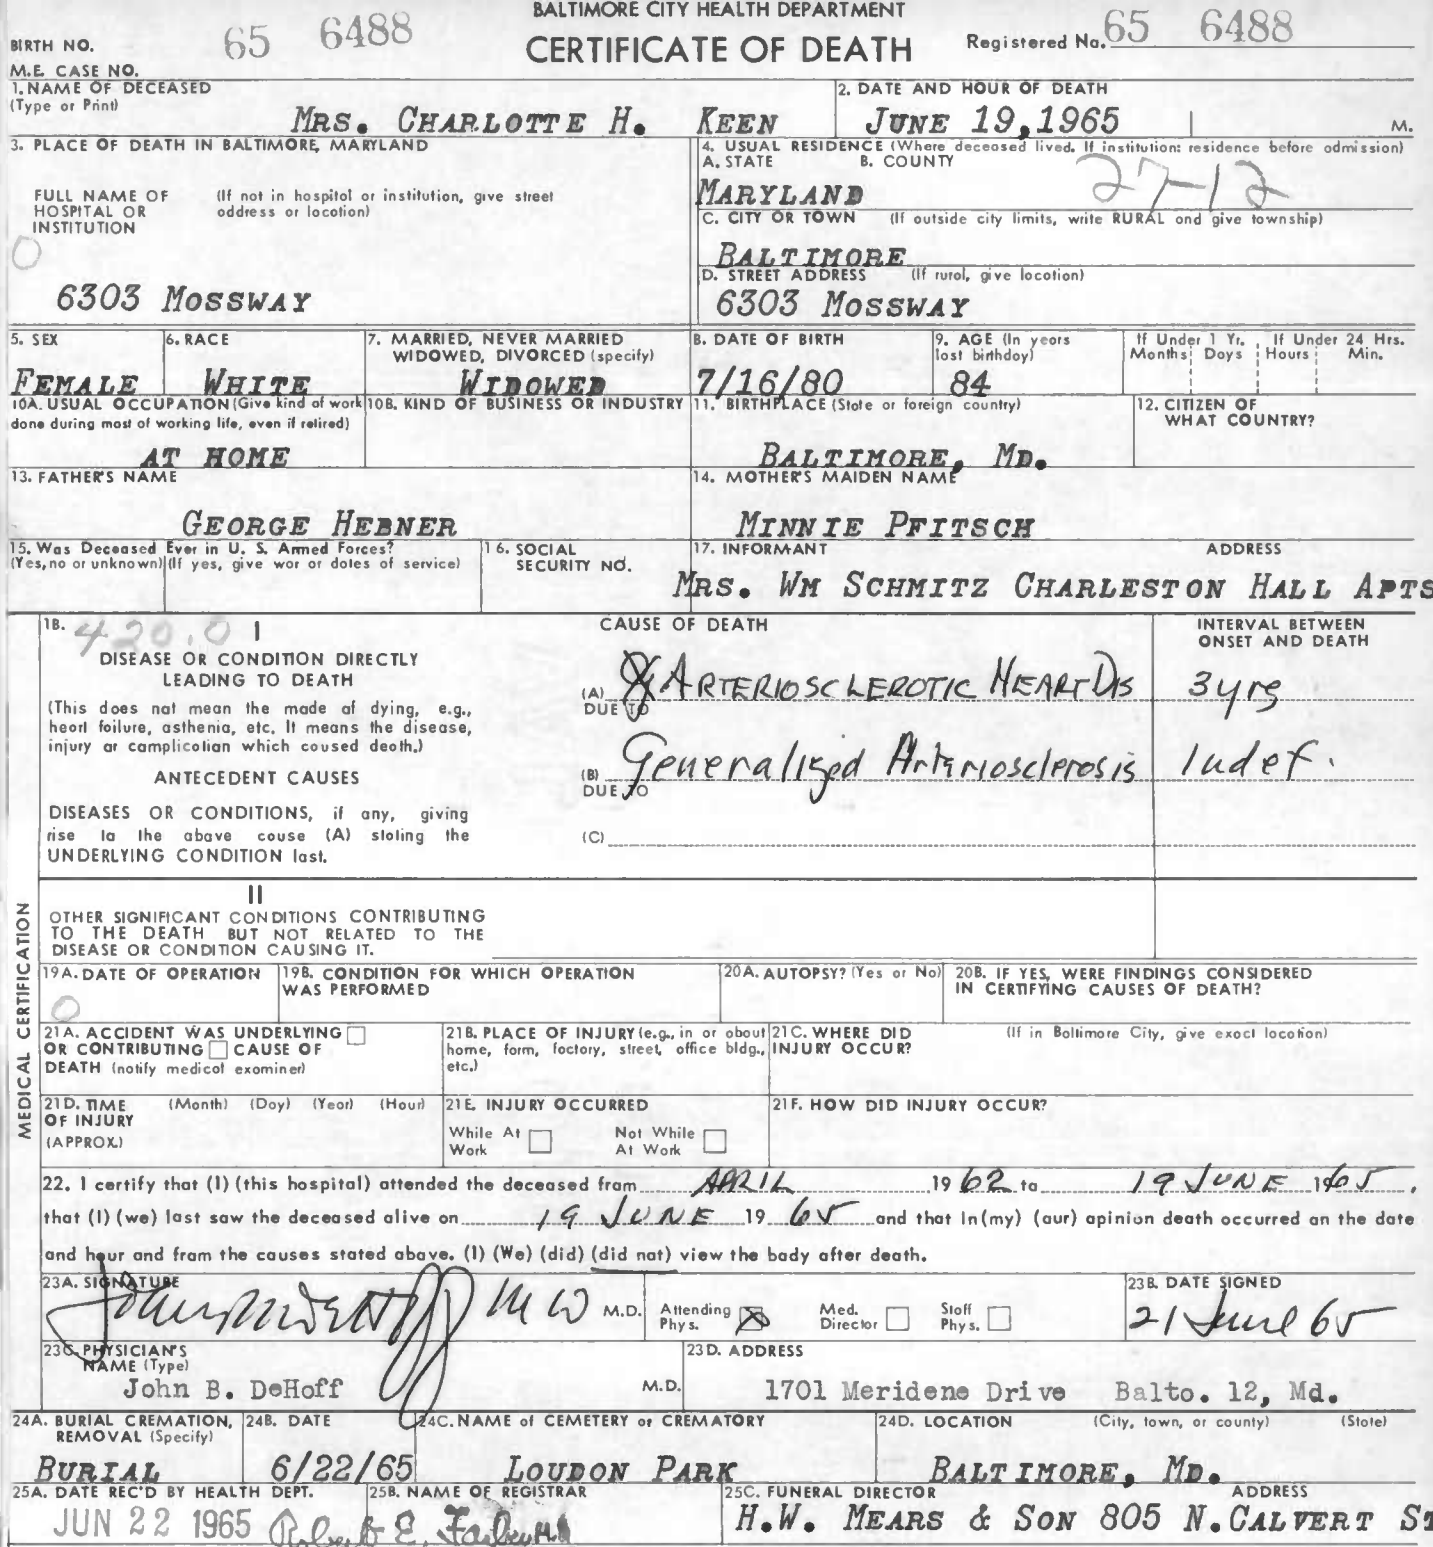 BALTIMORE CITY HEALTH DEPARTMENT
BIRTH NO. 65 6488 CERTIFICATE OF DEATH Registered No. 65 6488
M.E. CASE NO.
1. NAME OF DECEASED (Type or Print) MRS. CHARLOTTE H. KEEN
2. DATE AND HOUR OF DEATH JUNE 19, 1965 M.
3. PLACE OF DEATH IN BALTIMORE, MARYLAND
FULL NAME OF HOSPITAL OR INSTITUTION (If not in hospital or institution, give street address or location)
0
6303 MOSSWAY
4. USUAL RESIDENCE (Where deceased lived. If institution: residence before admission)
A. STATE B. COUNTY
MARYLAND 27-12
C. CITY OR TOWN (If outside city limits, write RURAL and give township)
BALTIMORE
D. STREET ADDRESS (If rural, give location)
6303 MOSSWAY
5. SEX FEMALE
6. RACE WHITE
7. MARRIED, NEVER MARRIED WIDOWED, DIVORCED (specify) WIDOWED
8. DATE OF BIRTH 7/16/80
9. AGE (In years last birthday) 84
If Under 1 Yr. Months Days
If Under 24 Hrs. Hours Min.
10A. USUAL OCCUPATION (Give kind of work done during most of working life, even if retired) AT HOME
10B. KIND OF BUSINESS OR INDUSTRY
11. BIRTHPLACE (State or foreign country) BALTIMORE, MD.
12. CITIZEN OF WHAT COUNTRY?
13. FATHER'S NAME GEORGE HEBNER
14. MOTHER'S MAIDEN NAME MINNIE PFITSCH
15. Was Deceased Ever in U. S. Armed Forces? (Yes, no or unknown) (If yes, give war or dates of service)
16. SOCIAL SECURITY NO.
17. INFORMANT ADDRESS
MRS. WM SCHMITZ CHARLESTON HALL APTS
MEDICAL CERTIFICATION
18. 420.0 I CAUSE OF DEATH INTERVAL BETWEEN ONSET AND DEATH
DISEASE OR CONDITION DIRECTLY LEADING TO DEATH
(This does not mean the mode of dying, e.g., heart failure, asthenia, etc. It means the disease, injury or complication which caused death.)
(A) ARTERIOSCLEROTIC HEART DIS 3 yrs
DUE TO
ANTECEDENT CAUSES
(B) Generalized Arteriosclerosis Indef.
DUE TO
DISEASES OR CONDITIONS, if any, giving rise to the above cause (A) stating the UNDERLYING CONDITION last.
(C)
II
OTHER SIGNIFICANT CONDITIONS CONTRIBUTING TO THE DEATH BUT NOT RELATED TO THE DISEASE OR CONDITION CAUSING IT.
19A. DATE OF OPERATION 0
19B. CONDITION FOR WHICH OPERATION WAS PERFORMED
20A. AUTOPSY? (Yes or No)
20B. IF YES, WERE FINDINGS CONSIDERED IN CERTIFYING CAUSES OF DEATH?
21A. ACCIDENT WAS UNDERLYING OR CONTRIBUTING CAUSE OF DEATH (notify medical examiner)
21B. PLACE OF INJURY (e.g., in or about home, farm, factory, street, office bldg., etc.)
21C. WHERE DID INJURY OCCUR? (If in Baltimore City, give exact location)
21D. TIME OF INJURY (APPROX.) (Month) (Day) (Year) (Hour)
21E. INJURY OCCURRED While At Work Not While At Work
21F. HOW DID INJURY OCCUR?
22. I certify that (I) (this hospital) attended the deceased from APRIL 19 62 to 19 JUNE 1965,
that (I) (we) last saw the deceased alive on 19 JUNE 19 65 and that in (my) (our) opinion death occurred on the date
and hour and from the causes stated above. (I) (We) (did) (did not) view the body after death.
23A. SIGNATURE John B DeHoff MD M.D.
Attending Phys. Med. Director Staff Phys.
23B. DATE SIGNED 21 June 65
23C. PHYSICIAN'S NAME (Type) John B. DeHoff M.D.
23D. ADDRESS 1701 Meridene Drive Balto. 12, Md.
24A. BURIAL CREMATION, REMOVAL (Specify) BURIAL
24B. DATE 6/22/65
24C. NAME of CEMETERY or CREMATORY LOUDON PARK
24D. LOCATION (City, town, or county) (State) BALTIMORE, MD.
25A. DATE REC'D BY HEALTH DEPT. JUN 22 1965
25B. NAME OF REGISTRAR Robert E. Farber MD
25C. FUNERAL DIRECTOR ADDRESS
H.W. MEARS & SON 805 N. CALVERT ST